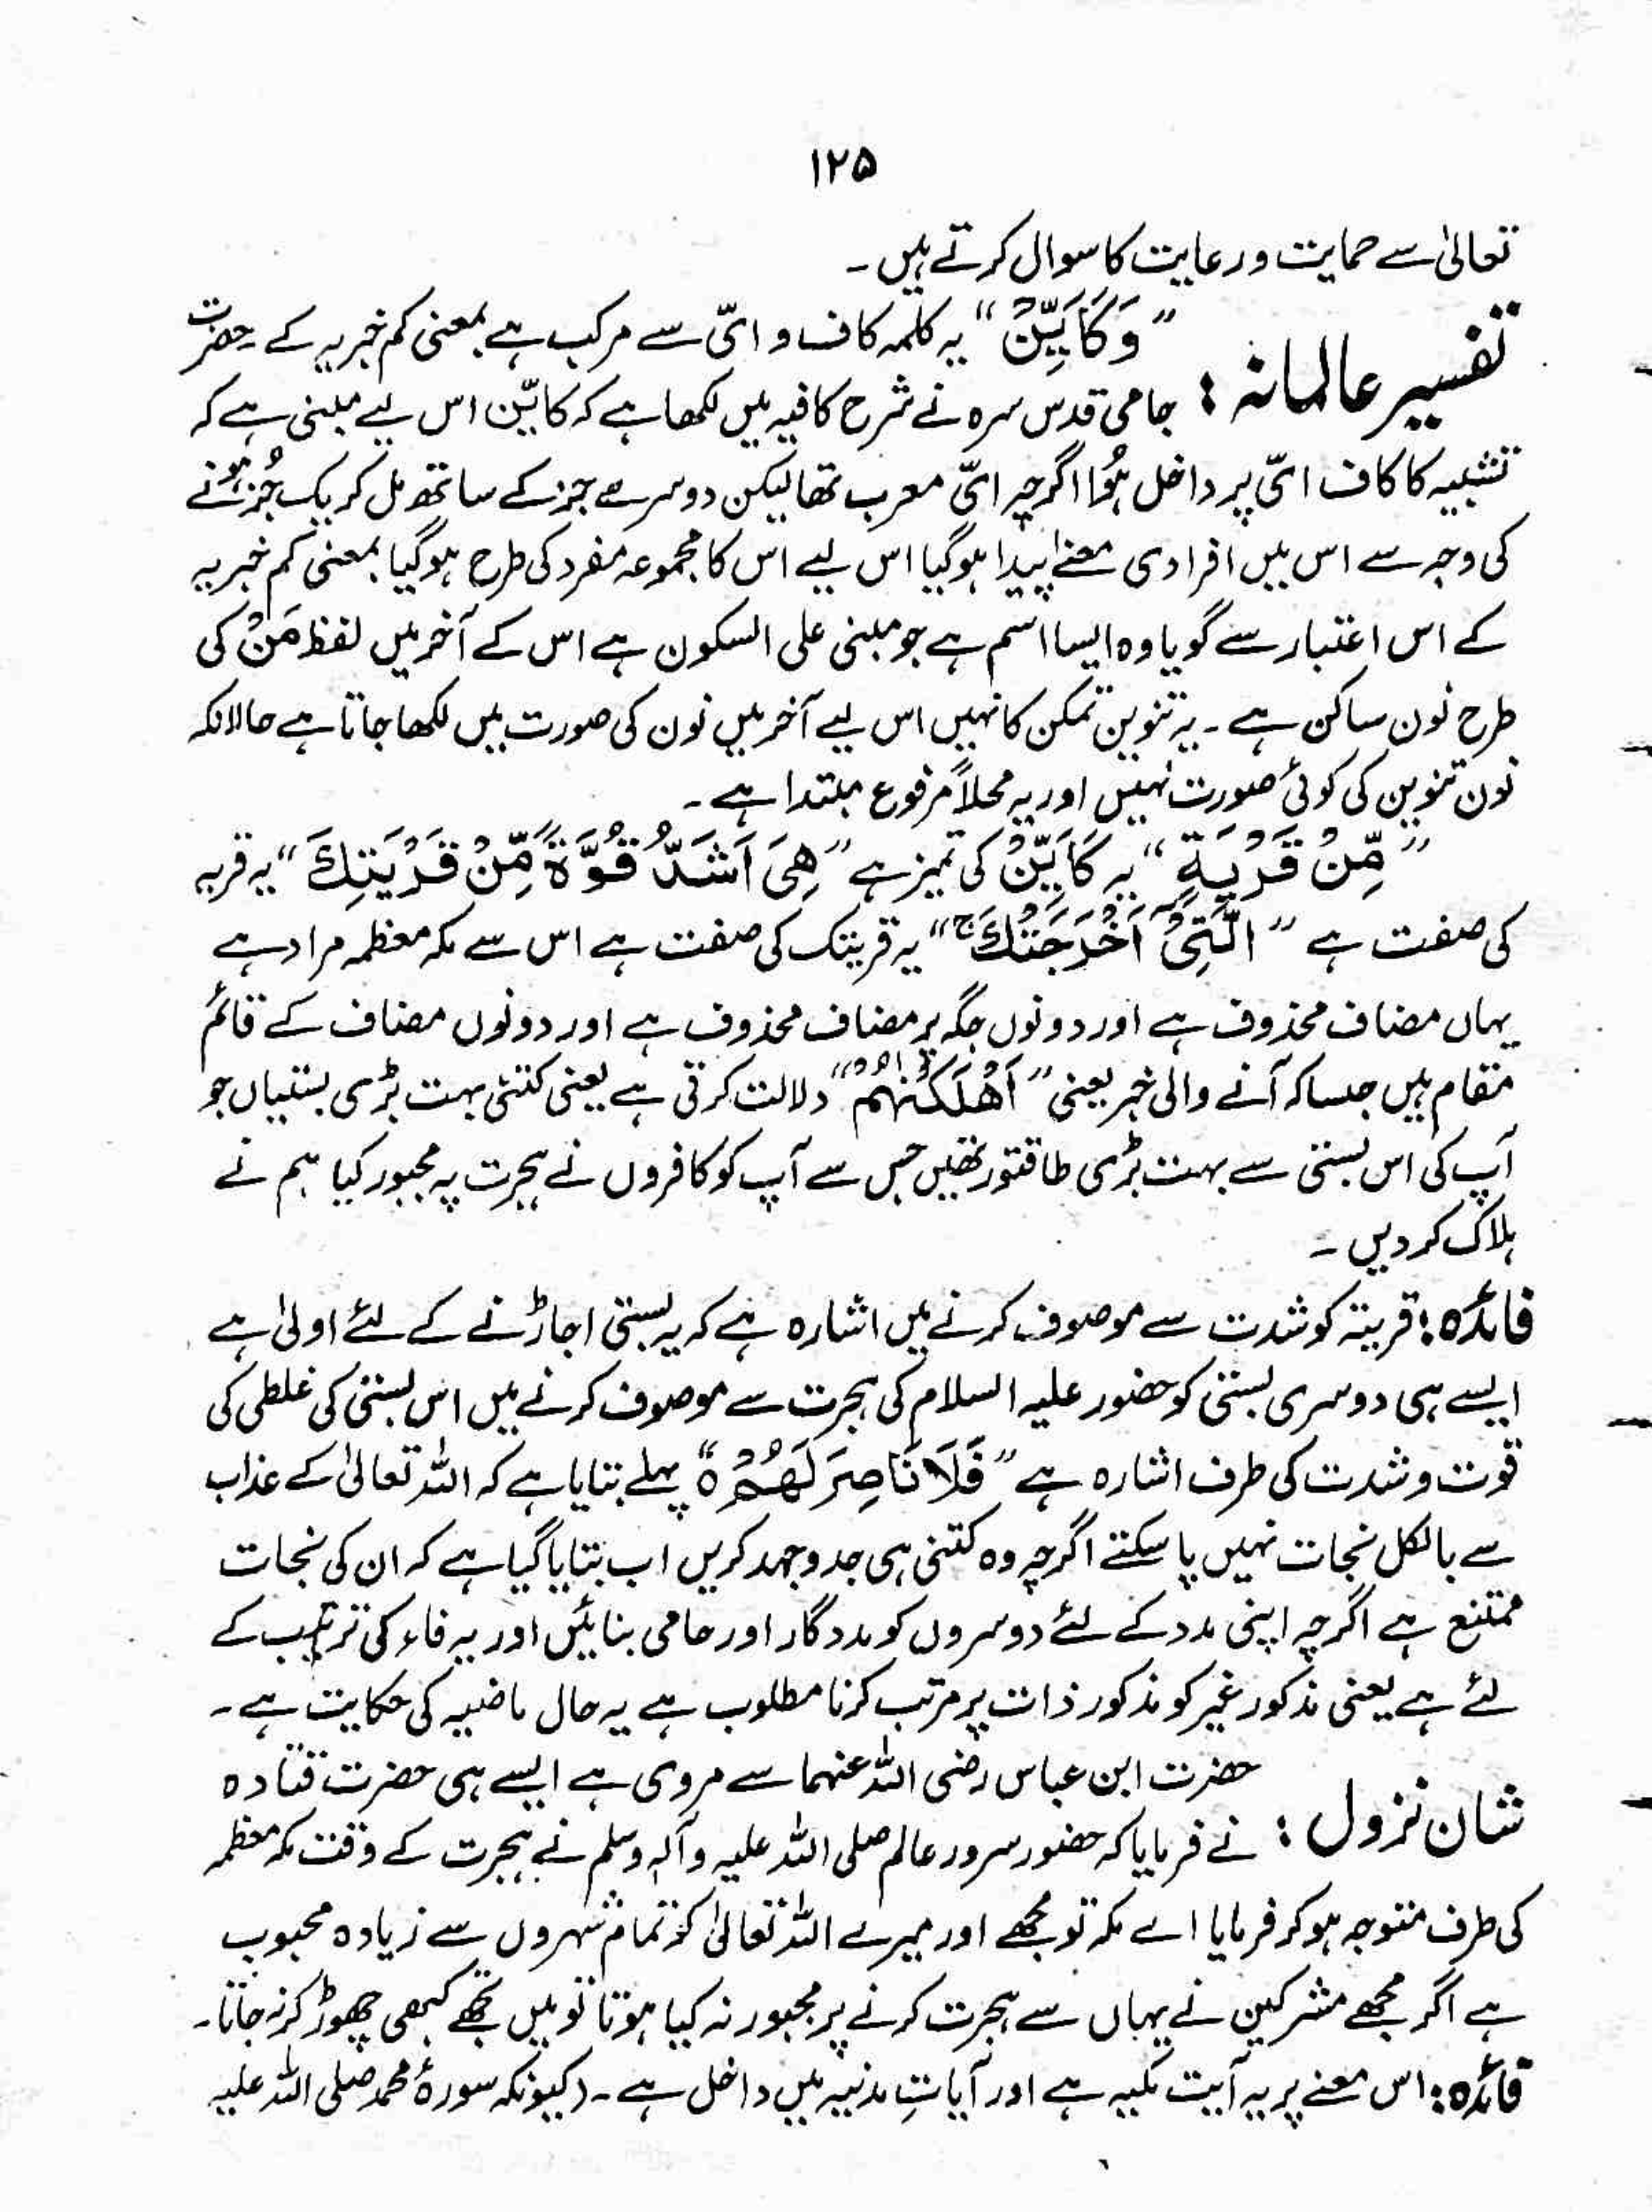 ۱۲۵
تعالیٰ سے حمایت ورعایت کا سوال کرتے ہیں۔
تفسیر عالمانہ :
"وَكَاَيِّنْ" یہ کلمہ کاف و ایّ سے مرکب ہے بمعنی کم خبریہ کے حضرت
جامی قدس سرہ نے شرح کافیہ میں لکھا ہے کہ کایّن اس لیے مبنی ہے کہ
تشبیہ کا کاف ایّ پر داخل ہُوا اگرچہ ایّ معرب تھا لیکن دوسرے جز کے ساتھ مل کر یک جُز ہونے
کی وجہ سے اس میں افرادی معنےٰ پیدا ہوگیا اس لیے اس کا مجموعہ مفرد کی طرح ہوگیا بمعنی کم خبریہ
کے اس اعتبار سے گویا وہ ایسا اسم ہے جو مبنی علی السکون ہے اس کے آخر میں لفظ مَنْ کی
طرح نون ساکن ہے۔ یہ تنوین تمکن کا نہیں اس لیے آخر میں نون کی صورت میں لکھا جاتا ہے حالانکہ
نون تنوین کی کوئی صورت نہیں اور یہ محلاً مرفوع مبتدا ہے۔
"مِّنْ قَرْيَةٍ" یہ كَاَيِّنْ کی تمیز ہے "هِىَ اَشَدُّ قُوَّةً مِّنْ قَرْيَتِكَ" یہ قریہ
کی صفت ہے "الَّتِىْۤ اَخْرَجَتْكَ ۚ" یہ قریتک کی صفت ہے اس سے مکہ معظمہ مراد ہے
یہاں مضاف محذوف ہے اور دونوں جگہ پر مضاف محذوف ہے اور دونوں مضاف کے قائم
مقام ہیں جیسا کہ آنے والی خبر یعنی "اَهْلَكْنٰهُمْ" دلالت کرتی ہے یعنی کتنی بہت بڑی بستیاں جو
آپ کی اس بستی سے بہت بڑی طاقتور تھیں جس سے آپ کو کافروں نے ہجرت پہ مجبور کیا ہم نے
ہلاک کر دیں۔
فائدہ : قریتہ کو شدت سے موصوف کرنے میں اشارہ ہے کہ یہ بستی اجاڑنے کے لئے اولیٰ ہے
ایسے ہی دوسری بستی کو حضور علیہ السلام کی ہجرت سے موصوف کرنے میں اس بستی کی غلطی کی
قوت و شدت کی طرف اشارہ ہے "فَلَا نَاصِرَ لَهُمْ ہ" پہلے بتایا ہے کہ اللہ تعالیٰ کے عذاب
سے بالکل نجات نہیں پا سکتے اگرچہ وہ کتنی ہی جدوجہد کریں اب بتایا گیا ہے کہ ان کی نجات
ممتنع ہے اگرچہ اپنی مدد کے لئے دوسروں کو مددگار اور حامی بنائیں اور یہ فاء کی ترتیب کے
لئے ہے یعنی مذکور غیر کو مذکور ذات پر مرتب کرنا مطلوب ہے یہ حال ماضیہ کی حکایت ہے۔
شان نزول :
حضرت ابن عباس رضی اللہ عنہما سے مروی ہے ایسے ہی حضرت قتادہ
نے فرمایا کہ حضور سرور عالم صلی اللہ علیہ وآلہٖ وسلم نے ہجرت کے وقت مکہ معظمہ
کی طرف متوجہ ہو کر فرمایا اے مکہ تو مجھے اور میرے اللہ تعالیٰ کو تمام شہروں سے زیادہ محبوب
ہے اگر مجھے مشرکین نے یہاں سے ہجرت کرنے پر مجبور نہ کیا ہوتا تو میں تجھے کبھی چھوڑ کر نہ جاتا۔
فائدہ : اس معنے پر یہ آیت مکیہ ہے اور آیاتِ مدنیہ میں داخل ہے۔ (کیونکہ سورۂ محمد صلی اللہ علیہ